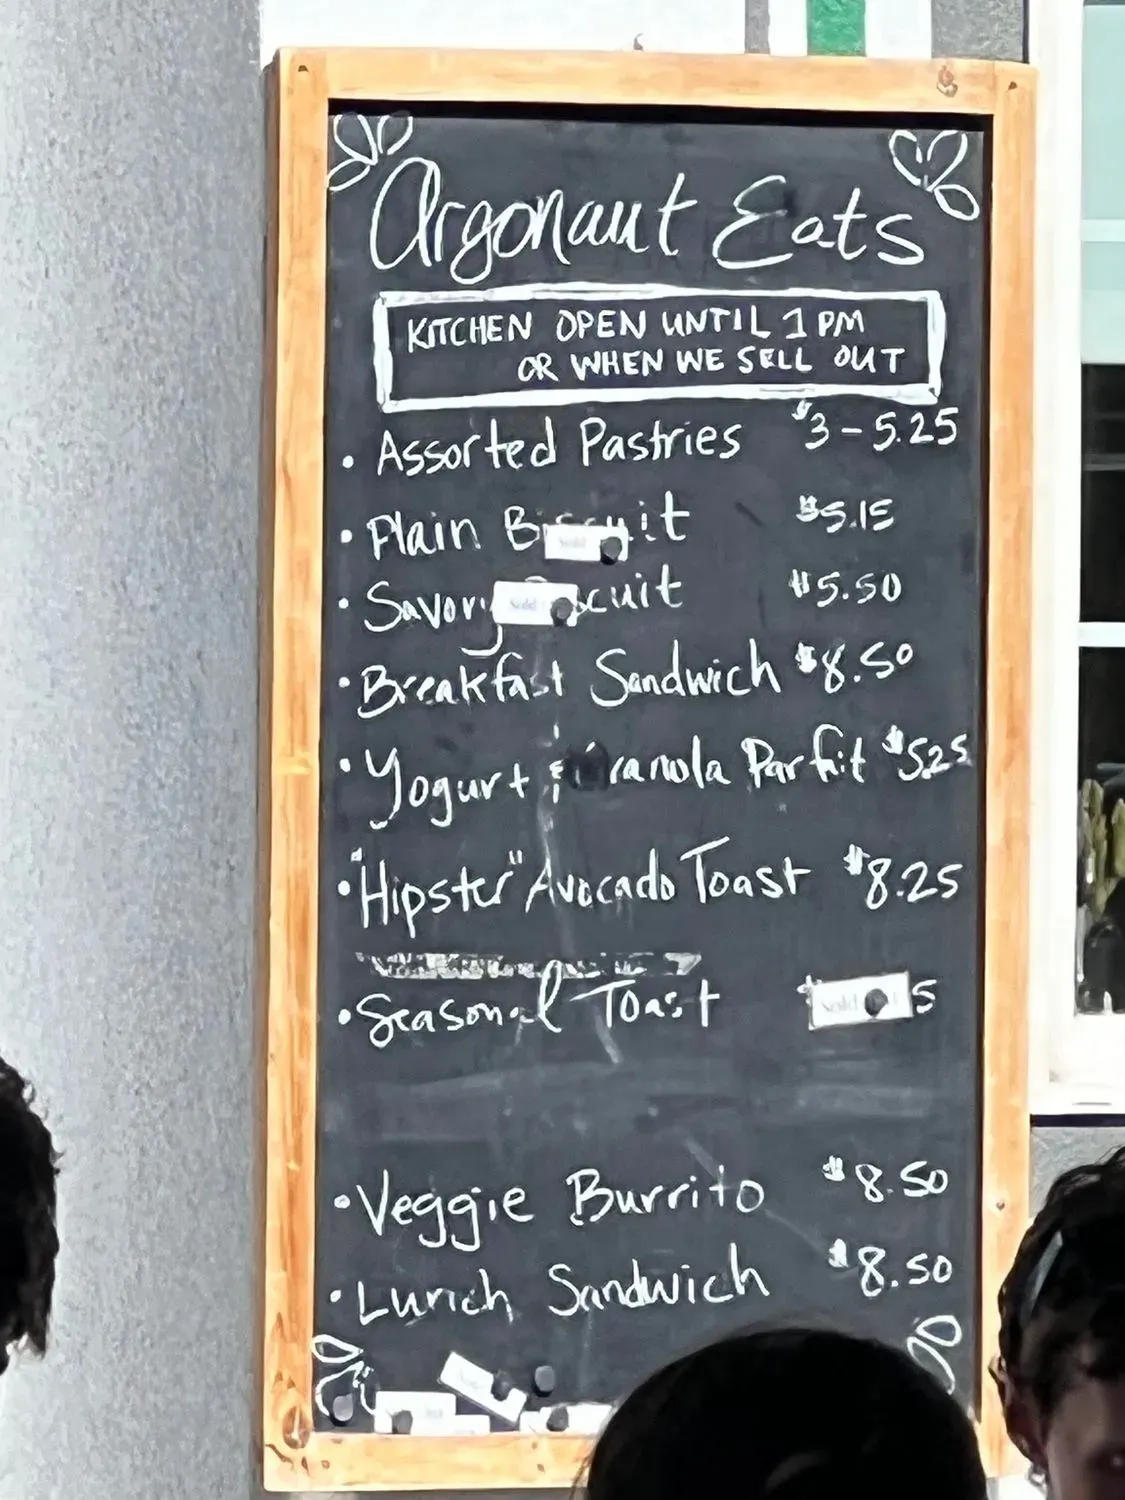 Argonaut Eats
KITCHEN OPEN UNTIL 1 PM
OR WHEN WE SELL OUT
• Assorted Pastries $3 - 5.25
• Plain Biscuit $5.15
Sold
• Savory Biscuit $5.50
Sold
• Breakfast Sandwich $8.50
• Yogurt & Granola Parfait $5.25
• "Hipster" Avocado Toast $8.25
• Seasonal Toast 5
Sold
• Veggie Burrito $8.50
• Lunch Sandwich $8.50